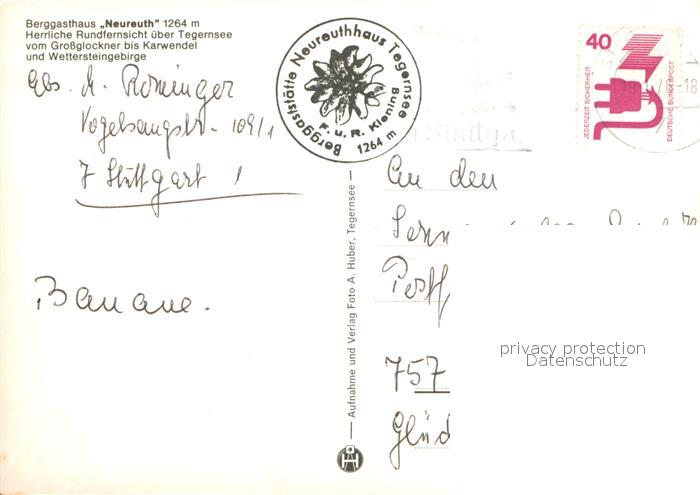 Berggasthaus „Neureuth" 1264 m
Herrliche Rundfernsicht über Tegernsee
vom Großglockner bis Karwendel
und Wettersteingebirge
Abs. M. Röninger
Vogelsangstr. 109/1
7 Stuttgart 1
Banane.
Berggaststätte Neureuthhaus Tegernsee
F. u. R. Kiening
1264 m
40
JEDERZEIT SICHERHEIT
DEUTSCHE BUNDESPOST
-18
— Aufnahme und Verlag Foto A. Huber, Tegernsee —
An den
Postf
757
Glüc
privacy protection
Datenschutz